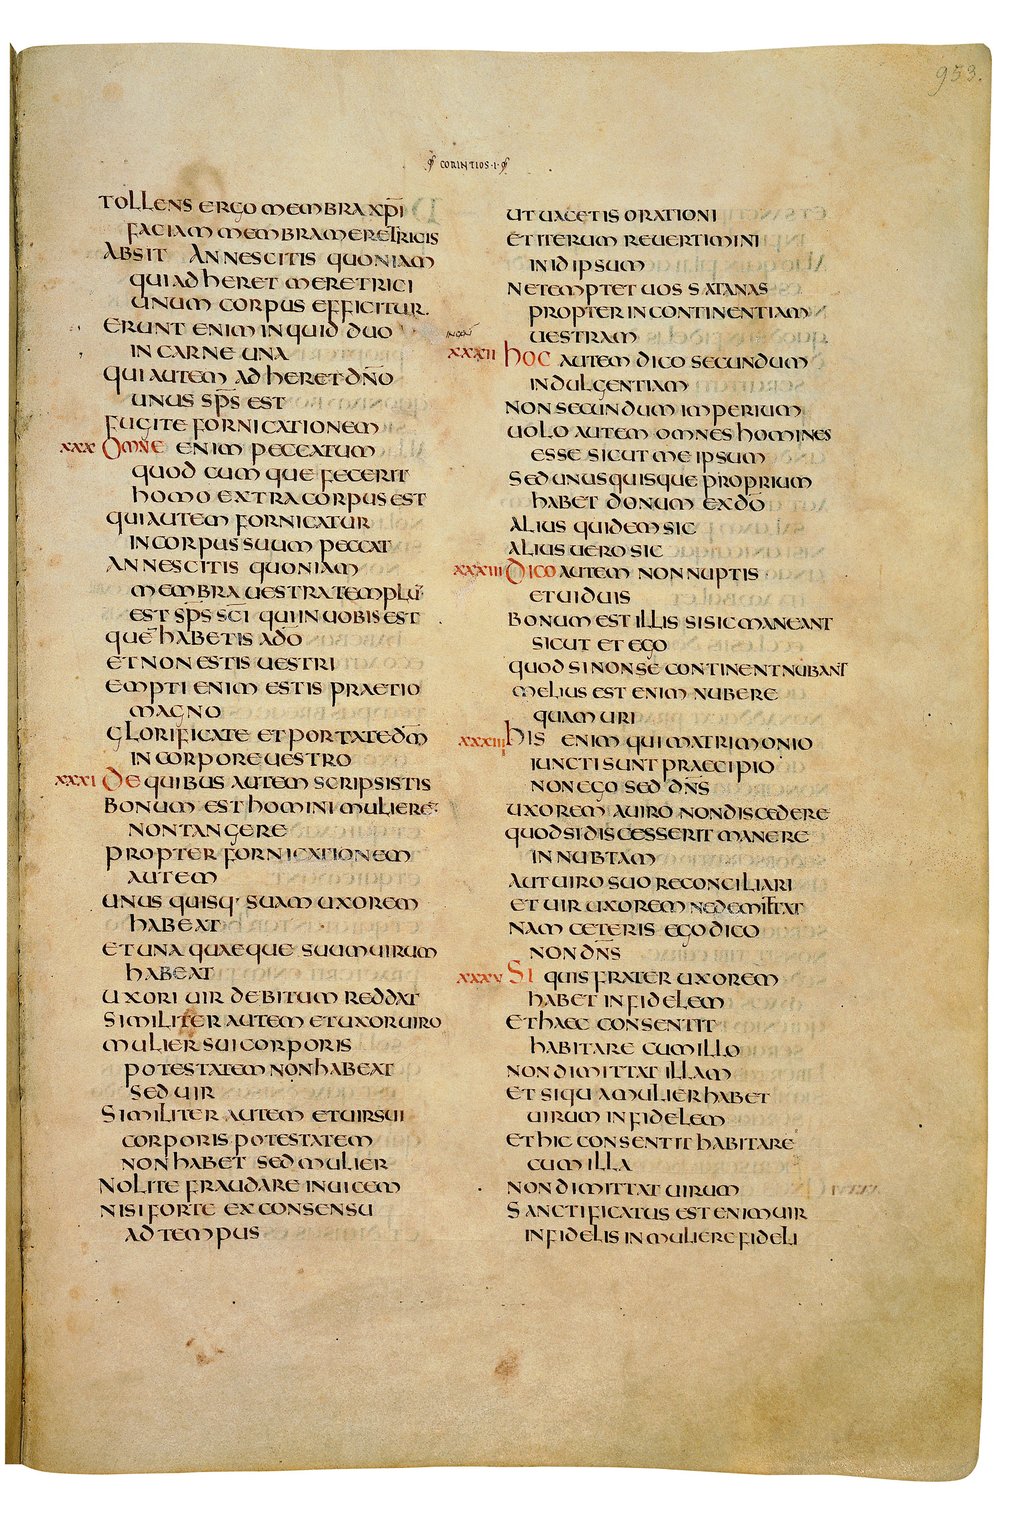 953.
CORINTIOS · I ·
TOLLENS ERGO MEMBRA XP̅I
FACIAM MEMBRA MERETRICIS
ABSIT AN NESCITIS QUONIAM
QUI ADHERET MERETRICI
UNUM CORPUS EFFICITUR.
ERUNT ENIM INQUID DUO
IN CARNE UNA
QUI AUTEM ADHERET DN̅O
UNUS SP̅S EST
FUGITE FORNICATIONEM
XXX OMNE ENIM PECCATUM
QUODCUMQUE FECERIT
HOMO EXTRA CORPUS EST
QUI AUTEM FORNICATUR
IN CORPUS SUUM PECCAT
AN NESCITIS QUONIAM
MEMBRA UESTRA TEMPLU̅
EST SP̅S SC̅I QUI IN UOBIS EST
QUE̅ HABETIS A D̅O
ET NON ESTIS UESTRI
EMPTI ENIM ESTIS PRAETIO
MAGNO
GLORIFICATE ET PORTATE D̅M
IN CORPORE UESTRO
XXXI DE QUIBUS AUTEM SCRIPSISTIS
BONUM EST HOMINI MULIERE̅
NON TANGERE
PROPTER FORNICATIONEM
AUTEM
UNUSQUISQ· SUAM UXOREM
HABEAT
ET UNAQUAEQUE SUUM UIRUM
HABEAT
UXORI UIR DEBITUM REDDAT
SIMILITER AUTEM ET UXOR UIRO
MULIER SUI CORPORIS
POTESTATEM NON HABEAT
SED UIR
SIMILITER AUTEM ET UIR SUI
CORPORIS POTESTATEM
NON HABET SED MULIER
NOLITE FRAUDARE INUICEM
NISI FORTE EX CONSENSU
AD TEMPUS
UT UACETIS ORATIONI
ET ITERUM REUERTIMINI
IN IDIPSUM
NE TEMPTET UOS SATANAS
PROPTER INCONTINENTIAM
UESTRAM
XXXII HOC AUTEM DICO SECUNDUM
INDULGENTIAM
NON SECUNDUM IMPERIUM
UOLO AUTEM OMNES HOMINES
ESSE SICUT ME IPSUM
SED UNUSQUISQUE PROPRIUM
HABET DONUM EX D̅O
ALIUS QUIDEM SIC
ALIUS UERO SIC
XXXIII DICO AUTEM NON NUPTIS
ET UIDUIS
BONUM EST ILLIS SI SIC MANEANT
SICUT ET EGO
QUOD SI NON SE CONTINENT NUBANT
MELIUS EST ENIM NUBERE
QUAM URI
XXXIIII HIS ENIM QUI MATRIMONIO
IUNCTI SUNT PRAECIPIO
NON EGO SED DN̅S
UXOREM A UIRO NON DISCEDERE
QUOD SI DISCESSERIT MANERE
INNUBTAM
AUT UIRO SUO RECONCILIARI
ET UIR UXOREM NE DEMITTAT
NAM CETERIS EGO DICO
NON DN̅S
XXXV SI QUIS FRATER UXOREM
HABET INFIDELEM
ET HAEC CONSENTIT
HABITARE CUM ILLO
NON DIMITTAT ILLAM
ET SI QUA MULIER HABET
UIRUM INFIDELEM
ET HIC CONSENTIT HABITARE
CUM ILLA
NON DIMITTAT UIRUM
SANCTIFICATUS EST ENIM UIR
INFIDELIS IN MULIERE FIDELI